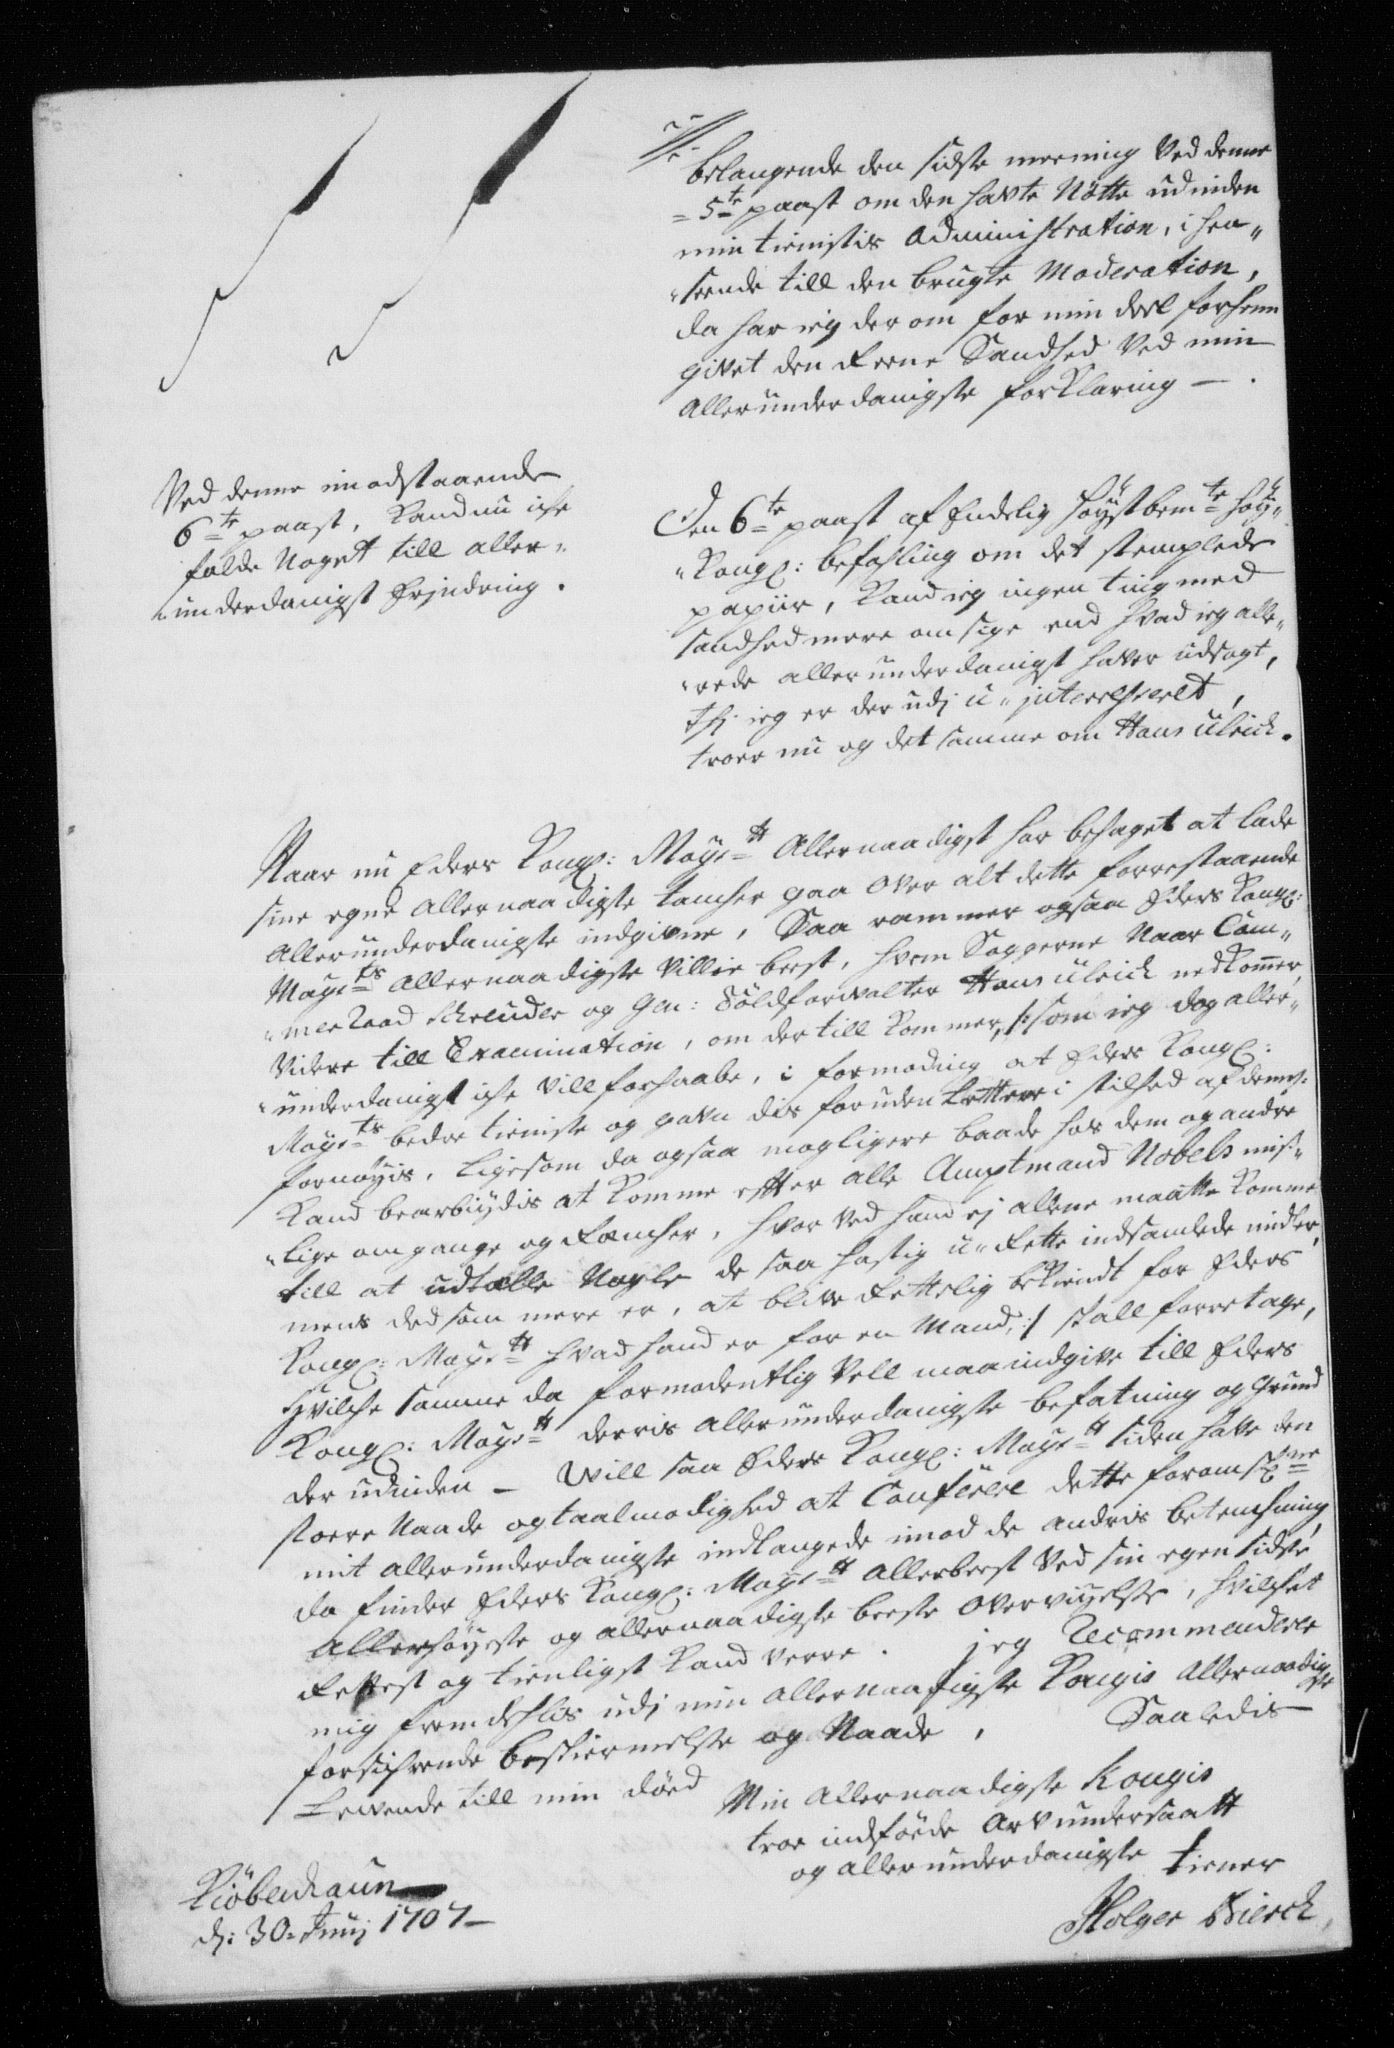 belangende den sidste meening Ved denne
= 5te paast om den hafte Nötte udinden
min tienistis Administration, i hen„
„seende till den brugte Moderation,
da har ieg der om for min deel forhenn
givet den Reene Sandhed Ved min
Allerunderdanigste forklaring — .
Ved denne imodstaaende
6te paast, Kand nu iche
falde Noget till aller„
„underdanigst Erjndring.
Den 6te paast af Endelig höystbemte höy„
„Kongl: befahling om det stemplede
papiir, Kand ieg ingen ting med
sandhed mere om sige end hvad ieg alle„
„rede allerunderdanigst haver udsagt,
thj ieg er der udj u„jnteresseret,
troer nu og det samme om Hans Ulrich.
Naar nu Eders Kongl: Mayestt Allernaadigst har behaget at lade
sine egne Allernaadigste tancher gaa over alt dette forrestaaende
Allerunderdanigste indgivne, Saa rammer ogsaa Eders Kongl:
Mayests Allernaadigste Villie best, hvem Saggerne Naar Cam„
„mer Raad Schreuder og Gen: Toldforvalter Hans Ulrich nedkommer,
Videre till Examination, om der till kommer, /: som ieg dog aller„
„underdanigst iche vill forhaabe, i formoding at Eders Kongl:
Mayests bedre tieniste og gavn dis foruden lettere i stilhed af dennem
fornöyis, ligesom da ogsaa mageligere baade hos dem og andre
Kand bearbiydis at komme efter alle Amptmand Nobels mis„
„lige omgange og Rencher, hvor Ved hand ej allene maatte komme
till at udtælle Nogle de saa hastig u„Rette indsamlede midler,
mens ded som mere er, at blive Rettelig bekiendt for Eders
Kongl: Mayestt hvad hand er for en Mand, :/ skall forretage,
Hvilche samme da formodentlig Vell maa indgive till Eders
Kongl: Mayestt derris allerunderdanigste befatning og Grund
der udinden — Will saa Eders Kongl: Mayestt siden have den
store Naade og taalmodighed at Conferere dette foromskrne
mit allerunderdanigste indlangede imod de andris betenchning,
da finder Eders Kongl: Mayestt allerbest Ved sin egen sidste
Allerhöyeste og allernaadigste beste overveyelse, hvilchet
Rettest og tienligst Kand verre. jeg Recommendere
mig fremdehlis udj min Allernaadigste Kongis Allernaadigste
forsichrende beskiermelse og Naade, Saaledis
Levende till min död
Min Allernaadigste Kongis
troe indföede Arv undersaatt
og allerunderdanigste tiener
Kiöbenhaun
dj: 30. Junj 1707 —
Holger Bierch